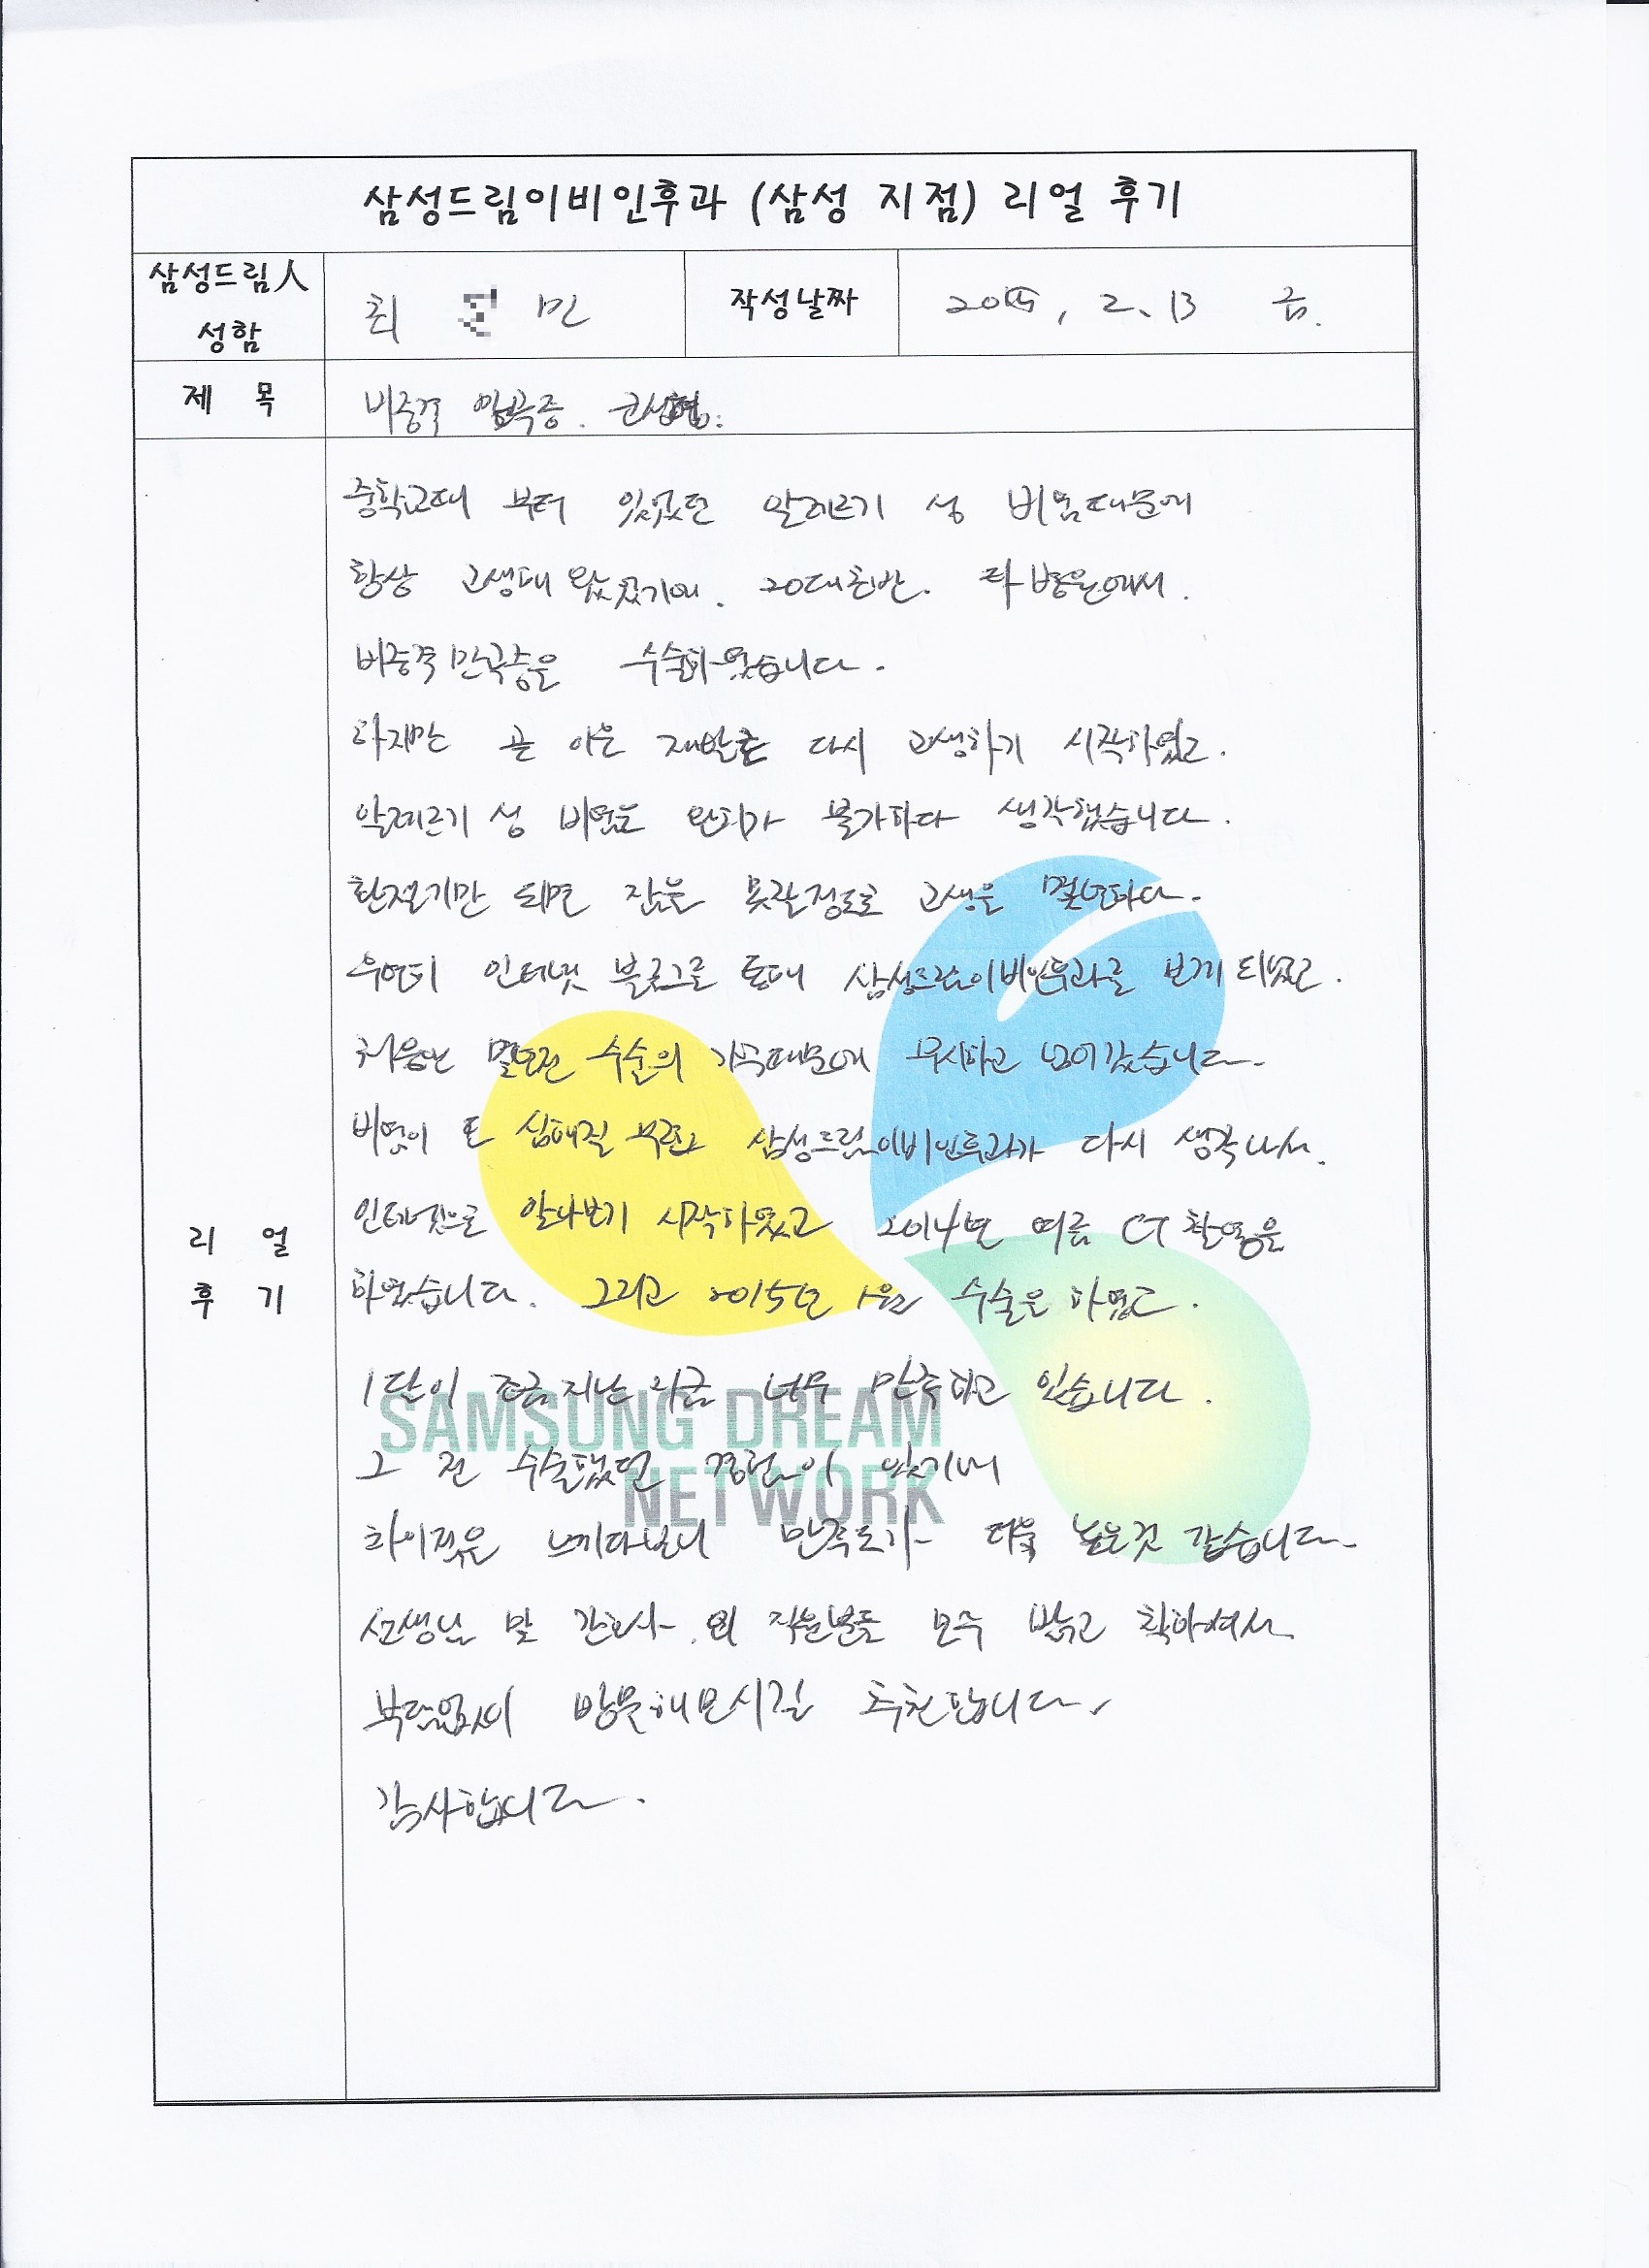 삼성드림이비인후과 (삼성 지점) 리얼 후기
삼성드림人 성함
최 민
작성날짜
2015, 2. 13 금.
제 목
비중격 만곡증.
중학교때 부터 있었던 알레르기 성 비염때문에
항상 고생해 왔었기에. 20대초반. 타 병원에서.
비중격만곡증을 수술하였습니다.
하지만 곧 이은 재발로 다시 고생하기 시작하였고.
알레르기 성 비염은 완치가 불가하다 생각했습니다.
환절기만 되면 잠을 못잘정도로 고생을 몇년하다.
우연히 인터넷 블로그를 통해 삼성드림이비인후과를 보게 되었고.
처음엔 몇년전 수술의 기억때문에 무시하고 넘어갔습니다.
비염이 또 심해질 무렵 삼성드림이비인후과가 다시 생각나서.
인터넷으로 알아보기 시작하였고 2014년 여름 CT 촬영을
하였습니다. 그리고 2015년 1월 수술을 하였고.
1달이 조금지난 지금 너무 만족하고 있습니다.
그 전 수술했던 경험이 있기에
차이점을 느끼다보니 만족도가 더욱 높은것 같습니다.
선생님 및 간호사. 외 직원분들 모두 밝고 착하여서
부담없이 방문해보시길 추천합니다.
감사합니다.
리 얼
후 기
SAMSUNG DREAM
NETWORK